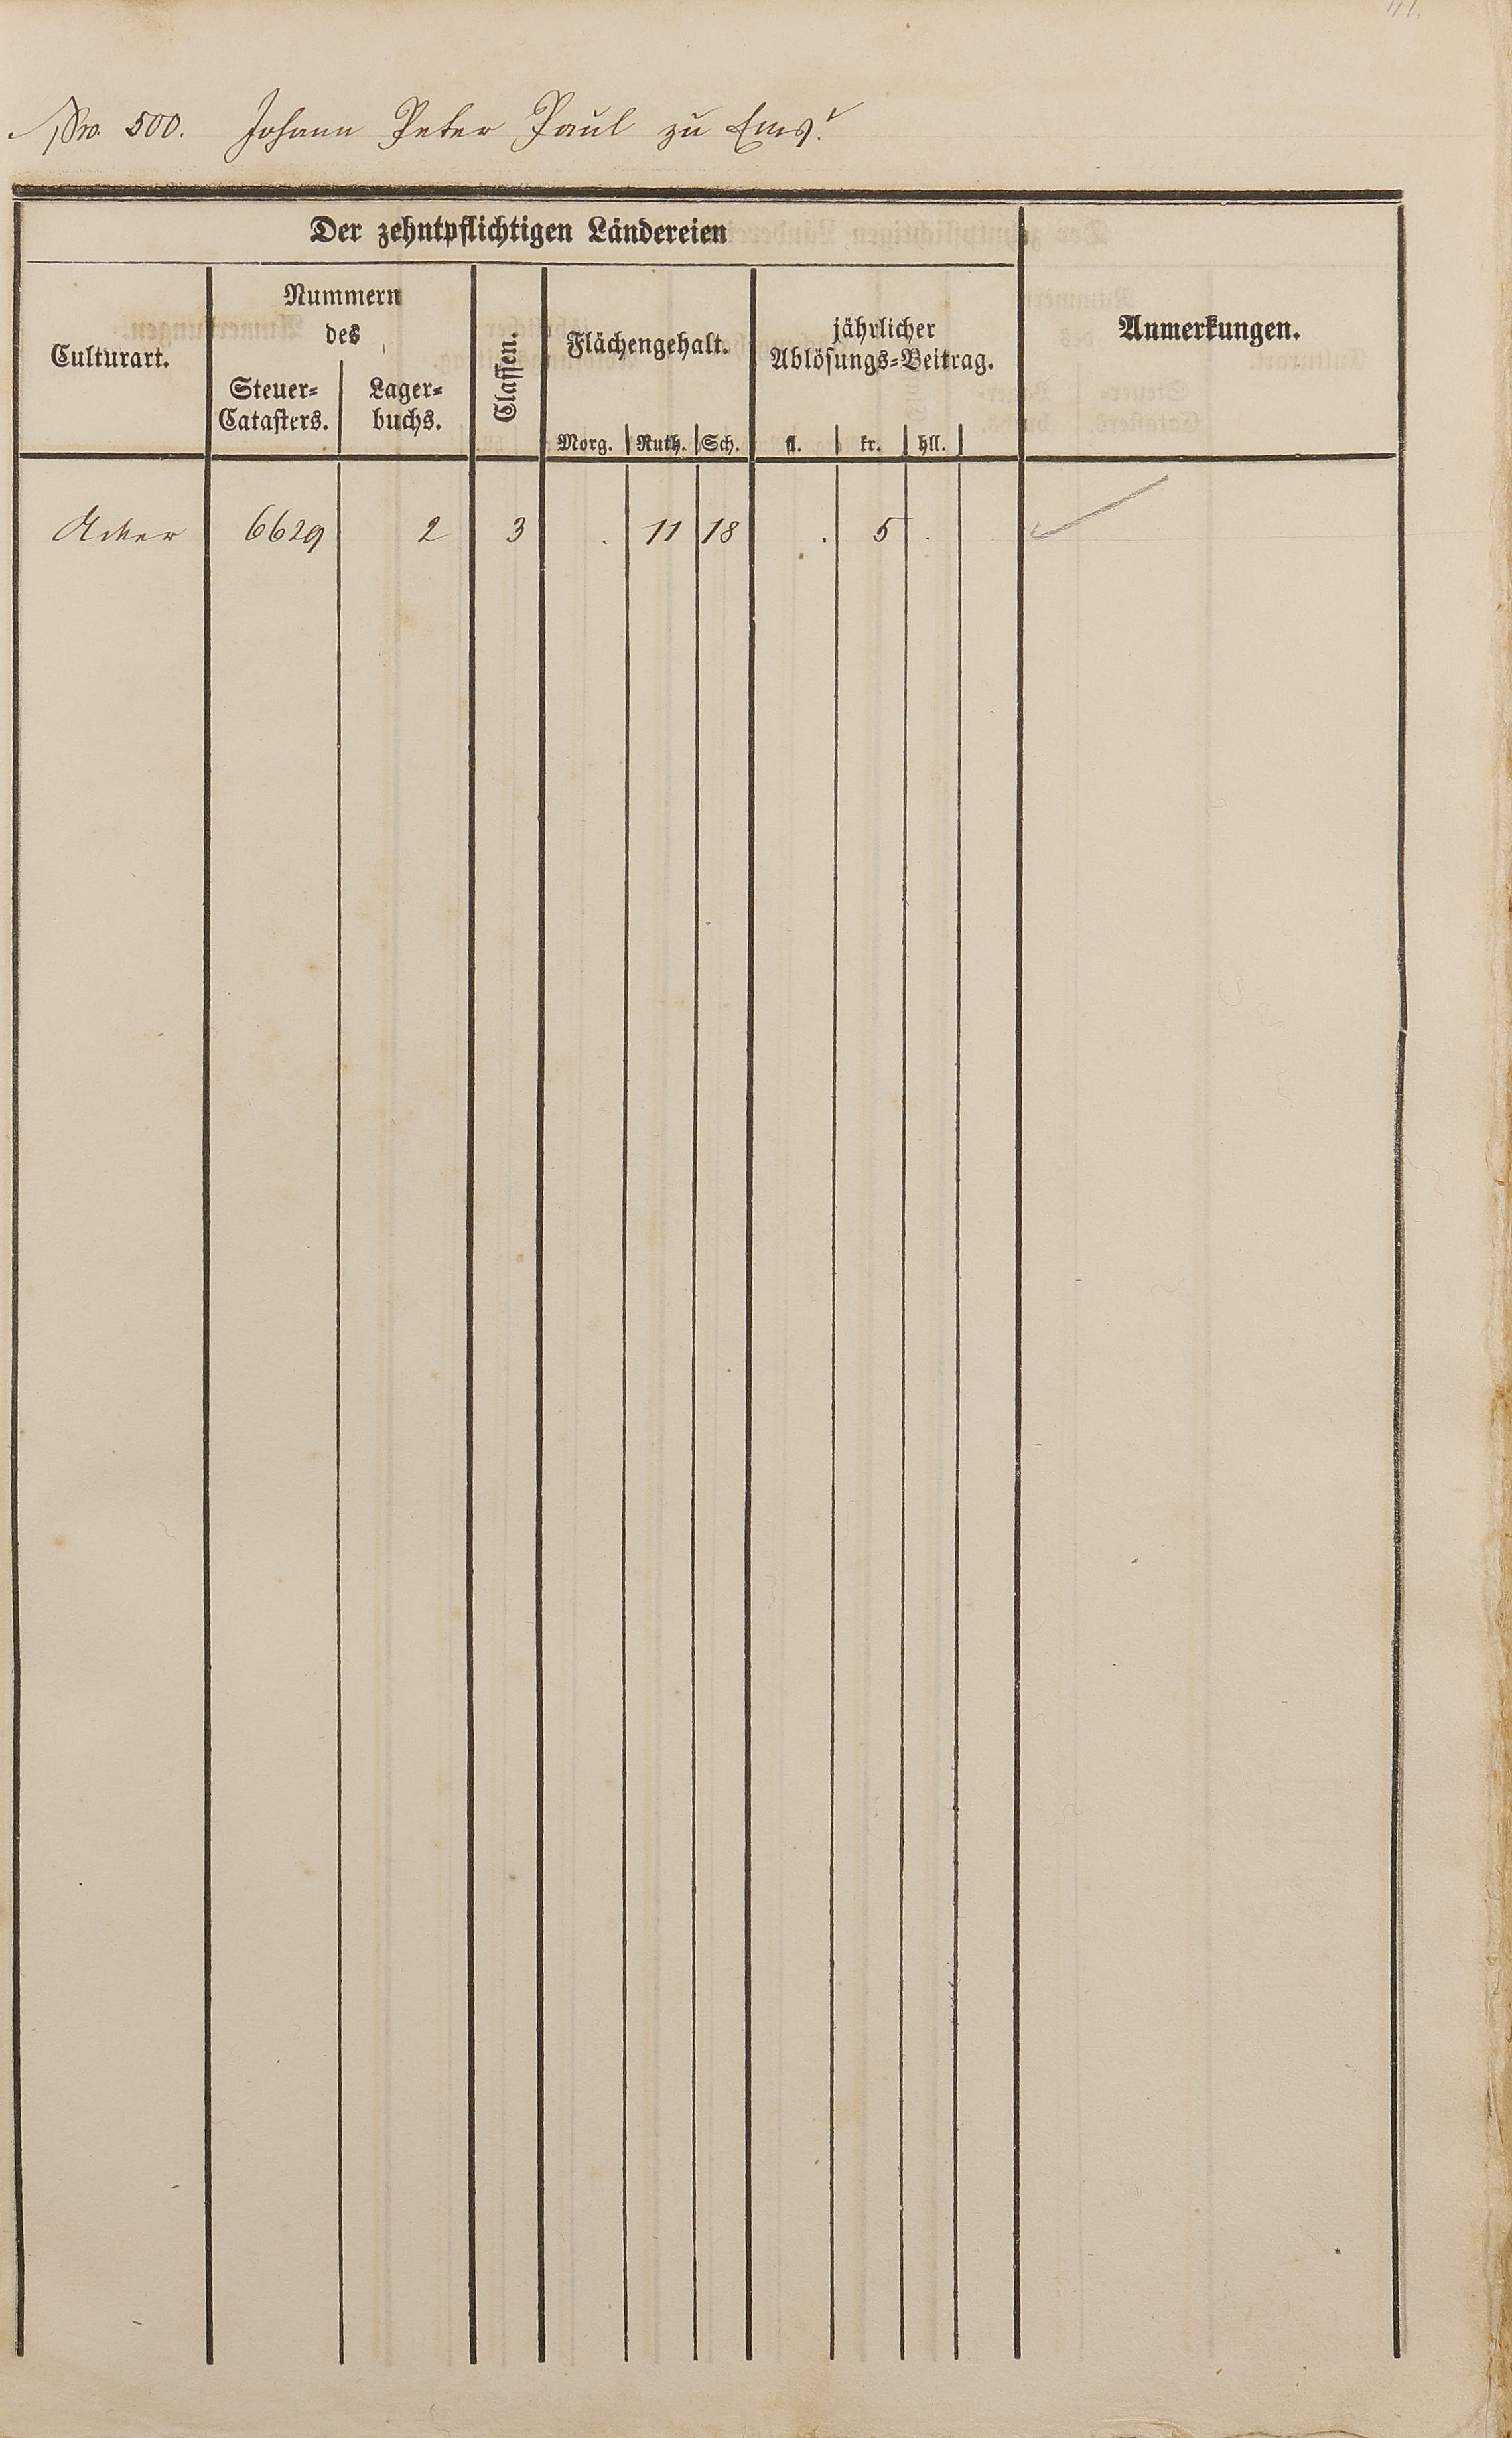 Nro. 500. Johann Peter Paul zu Ems.
Der zehntpflichtigen Ländereien
Culturart.
Nummern
des
Steuer=
Catasters.
Lager=
buchs.
Classen.
Flächengehalt.
Morg. Ruth. Sch.
jährlicher
Ablösungs=Beitrag.
fl. kr. hll.
Anmerkungen.
Acker 6629 2 3 . 11 18 . 5 .